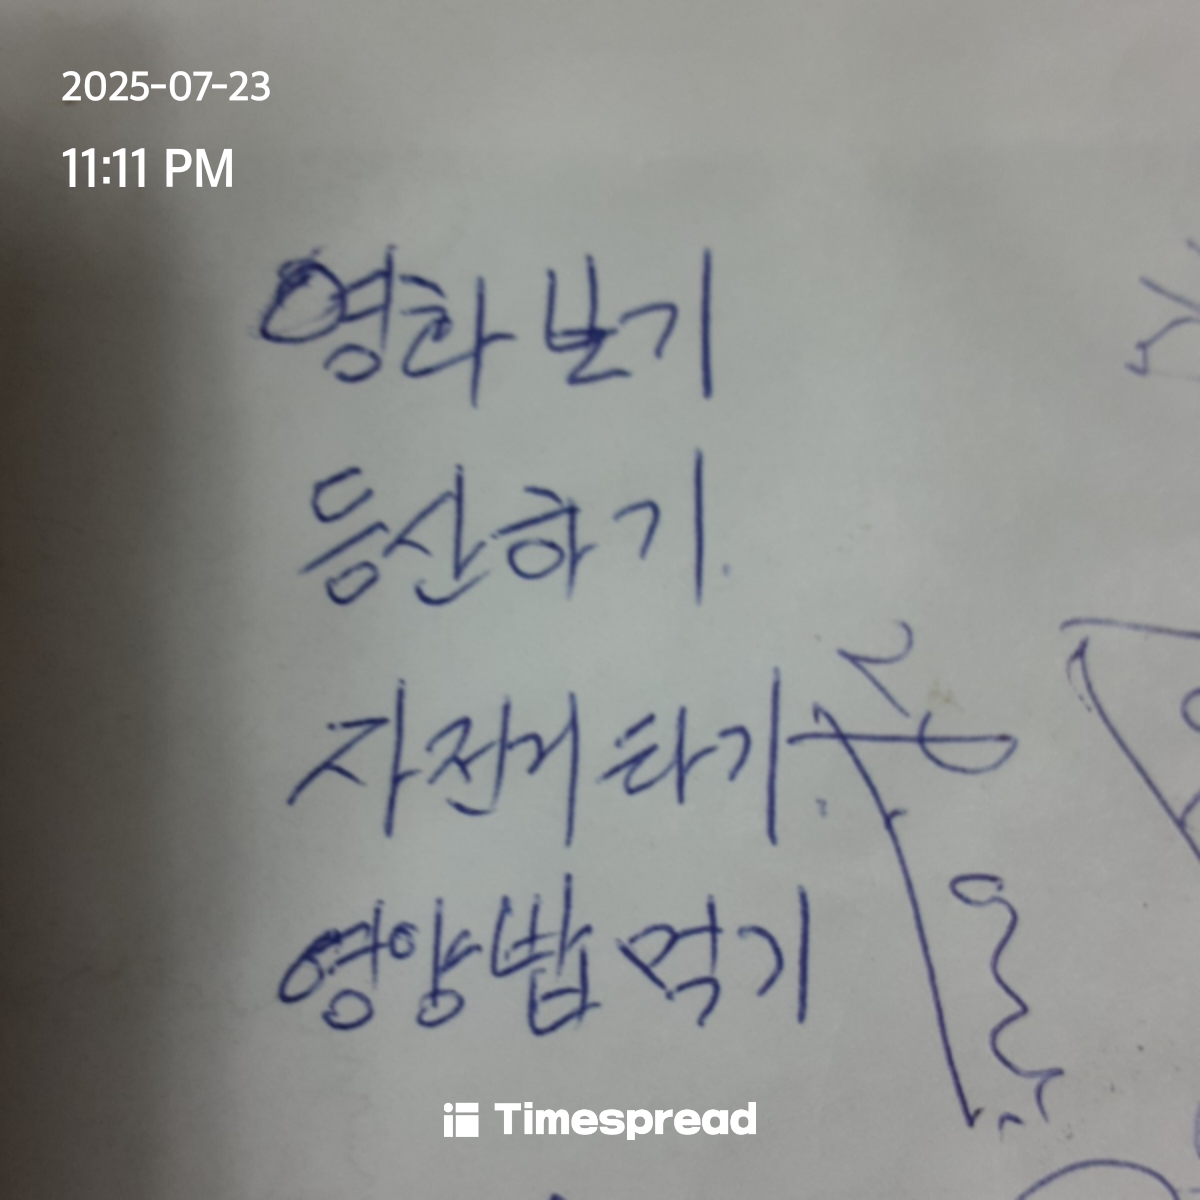 2025-07-23
11:11 PM
영화 보기
등산하기
자전거 타기
영양밥 먹기
Timespread